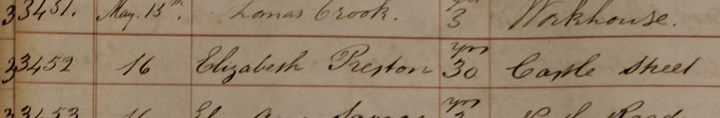 33451. May. 15th. Thomas Crook. 3 Workhouse.
33452 16 Elizabeth Preston yrs 30 Castle Street
33453 16 yrs Road